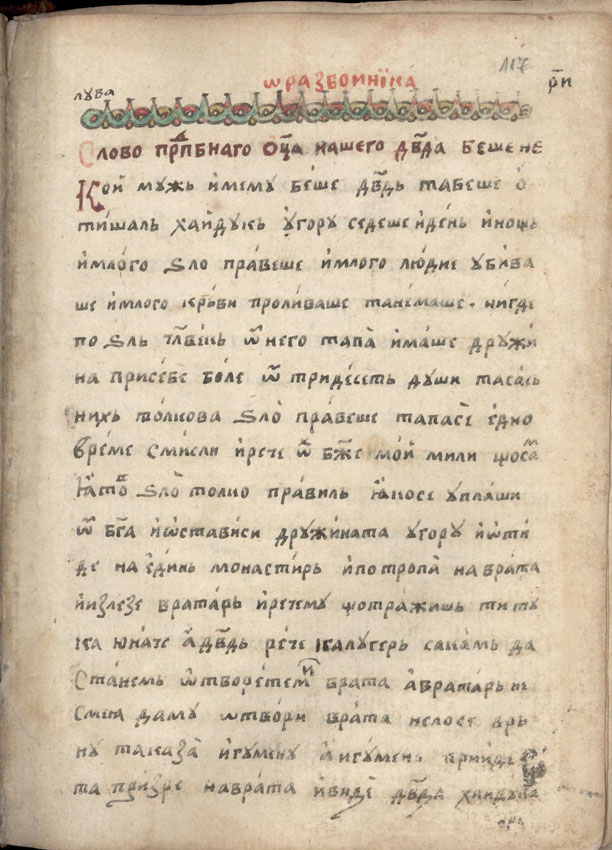 117
ѡ разбоинїка
лува
рⷨи
Слово прⷣпбнаго ѻц҃а нашего дв҃да беше не
Кой мужь и́мему бе́ше дв҃дь табеше ѻ
ти́шаль хайдукь у҆гору седеше и҆день и҆нощь
и҆мло́го ѕло пра́веше и҆млого лю́дие уби́ва
ше и҆млого крьви проли́ваше танема́ше нигде
по ѕль чл҃векь ѿ него тапа̀ има́ше дружи́
на присе́бе бо́ле ѿ тридесеть души тасась
нихь то́лкова ѕло̀ пра́веше тапасѐ е҆дно
вре́ме смисли и҆рече ѿ бж҃е мо́й мили що са
ꙗ҆ то ѕло̀ толко правиль ꙗ҆косе уплаши
ѿ бг҃а и҆ѡстависи дружи́ната угору и҆ѡти
де на е҆динь монасти́рь и҆потропа̀ на врата
и҆излезе врата́рь и҆речему що тра́жишь ти ту
ка юна́че а҆ дв҃дь ре́че калугерь сака́мь да
станемь ѿворетеми врата а҆врата́рь не
смеа да му ѡтво́ри врата́ нелосе врь
ну таказа̀ и҆гу́мену а҆ игу́мень прииде
та призре на вра́та и҆видѐ дв҃да хайдука